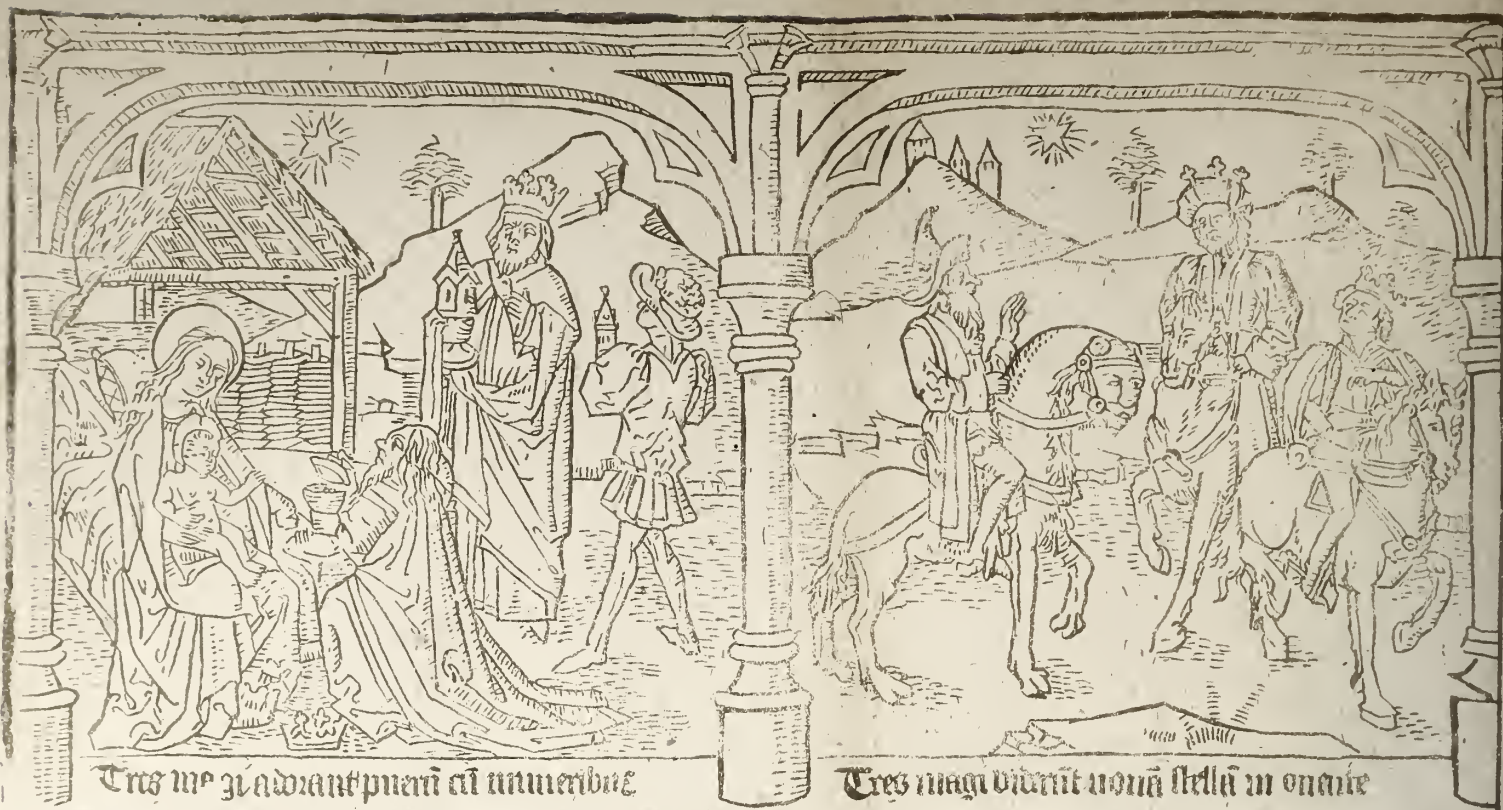 Tres magi adorant puerū cū muneribus
Tres magi viderūt novā stellā in oriente